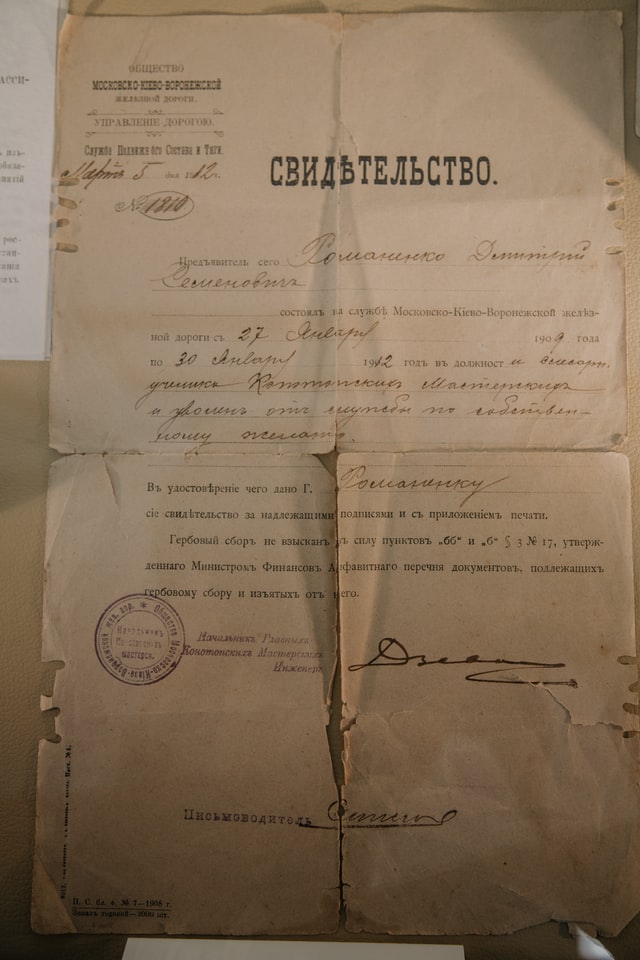 ОБЩЕСТВО
МОСКОВСКО-КІЕВО-ВОРОНЕЖСКОЙ
ЖЕЛѢЗНОЙ ДОРОГИ.
УПРАВЛЕНІЕ ДОРОГОЮ.
Служба Подвижного Состава и Тяги.
Мартъ 5 дня 1912г.
№ 1810
СВИДѢТЕЛЬСТВО.
Предъявитель сего Романенко Дмитрій
Семеновичъ
состоялъ на службѣ Московско-Кіево-Воронежской желѣз-
ной дороги съ 27 Января 1909 года
по 30 Января 1912 годъ въ должности слесарн.
ученика Конотопскихъ Мастерскихъ
и уволенъ отъ службы по собствен-
ному желанію.
Въ удостовѣреніе чего дано Г. Романенку
сіе свидѣтельство за надлежащими подписями и съ приложеніемъ печати.
Гербовый сборъ не взысканъ въ силу пунктовъ „бб“ и „б“ § 3 № 17, утверж-
деннаго Министромъ Финансовъ Алфавитнаго перечня документовъ, подлежащихъ
гербовому сбору и изъятыхъ отъ него.
Общество Московско-Кіево-Воронежской жел. дор.
Начальникъ
мастерск.
Начальникъ Главныхъ
Конотопскихъ Мастерскихъ
Инженеръ
Письмоводитель
П. С. бл. е. № 7—1908 г.